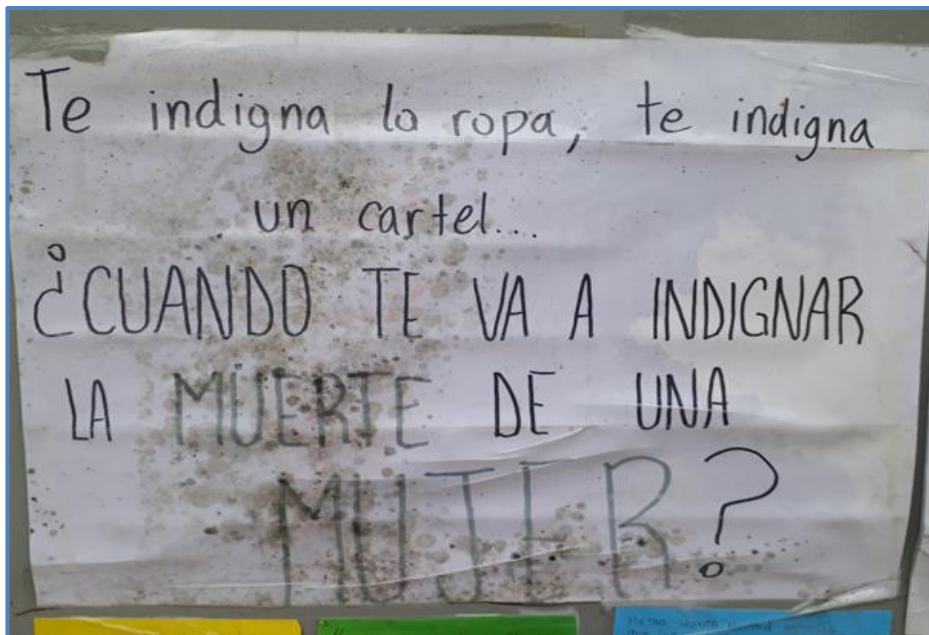 Te indigna la ropa, te indigna
un cartel...
¿CUANDO TE VA A INDIGNAR
LA MUERTE DE UNA
MUJER?